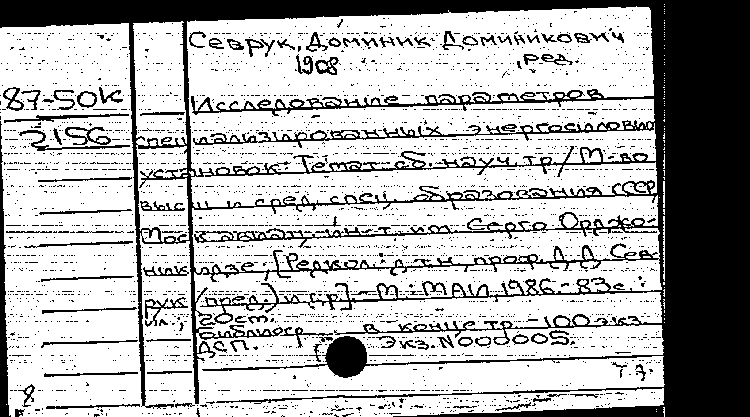 Севрук, Доминик Доминикович
1908 , ред.
87-50к
Исследование параметров
2156
специализированных энергосиловых
установок: Темат. сб. науч. тр. / М-во
высш и сред. спец. образования СССР,
Моск авиац. инст. им. Серго Орджо-
никидзе; [Редкол.: д.т.н., проф. Д.Д. Сев-
рук (пред.) и др.]. - М.: МАИ, 1986. - 83 с.:
ил.; 20 см.
Библиогр в конце тр. - 100 экз.
ДСП. Экз. N000005.
Т.А.
8